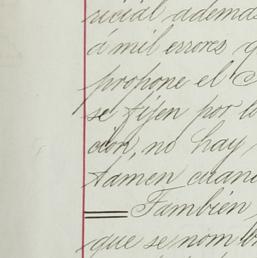 ricial ademas
á mil errores q
propone el
se fijen por lo
cion, no hay
tamen cuan
Tambien
que se nom